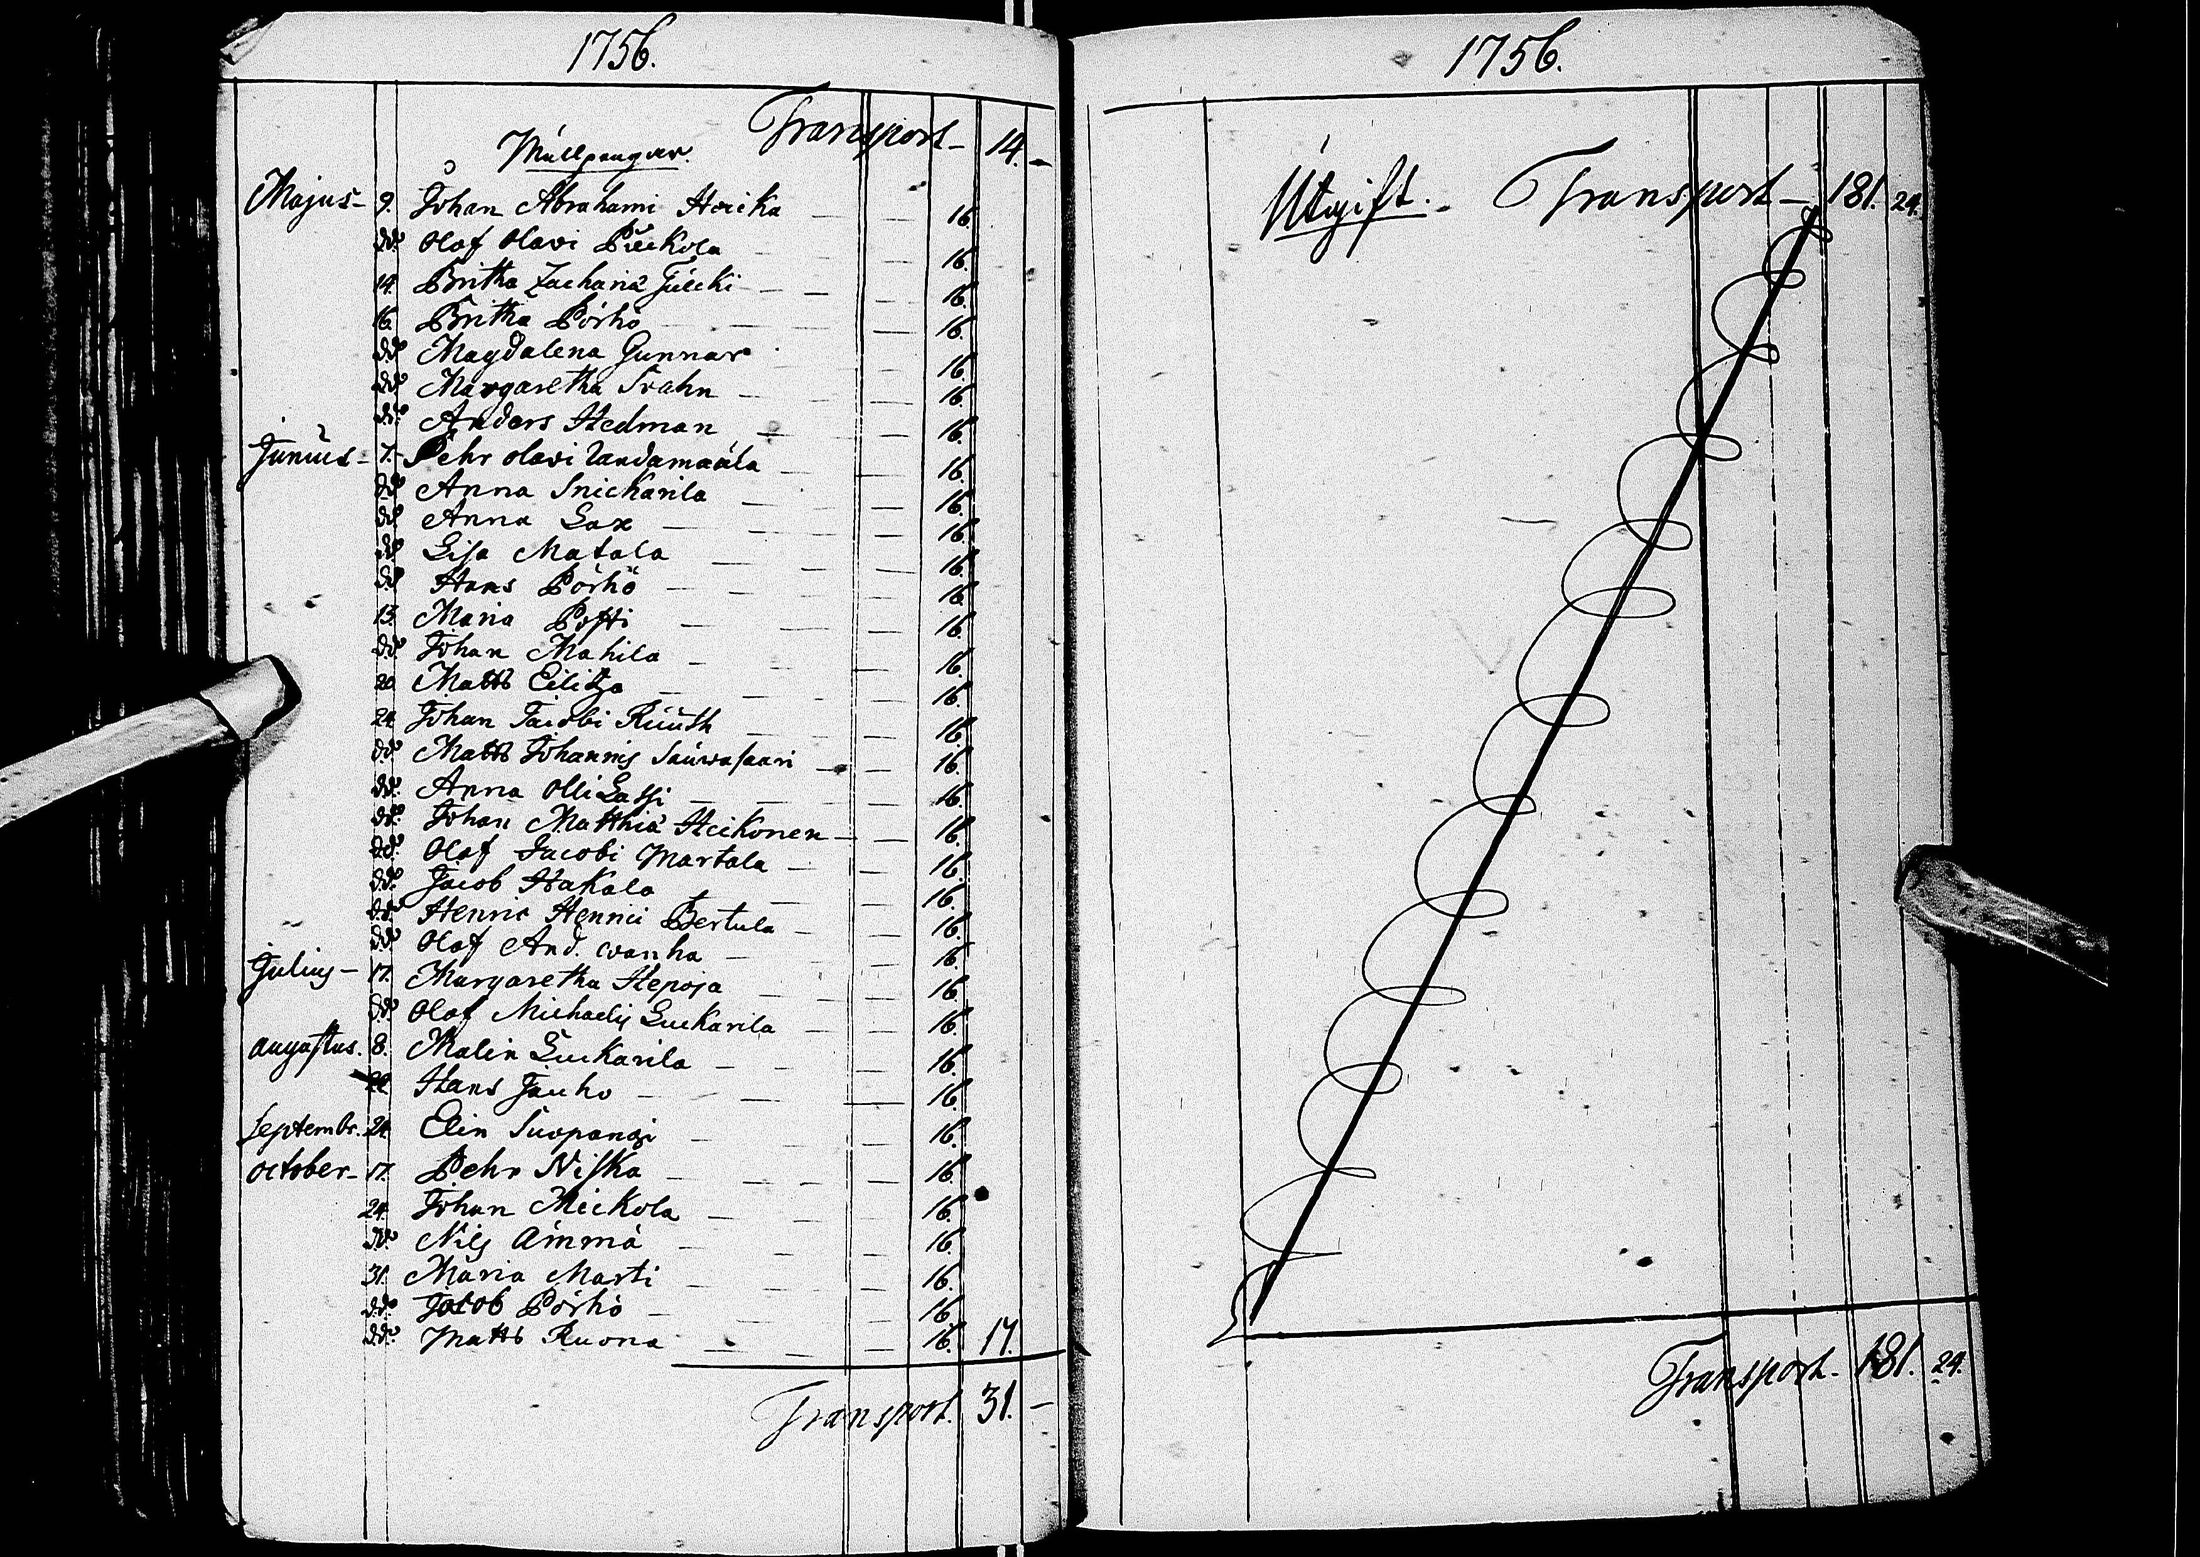 1756.
Transport - 14. -
Mullpengar.
Majus - 9. Johan Abrahami Heicka - 16.
dd. Olof Olavi Pieckola - 16.
14. Britha Zachariæ - 16.
16. Britha Pörhö - 16.
dd. Magdalena Gunnar - 16.
dd. Margaretha Svahn - 16.
dd. Anders Hedman - 16.
Junius - 7. Pehr Olavi - 16.
dd. Anna Snickarila - 16.
dd. Anna Lax - 16.
dd. Lisa Matala - 16.
dd. Hans Pörhö - 16.
13. Maria Posti - 16.
dd. Johan Mahila - 16.
20. Matts - 16.
24. Johan Jacobi Ruuth - 16.
dd. Matts Johannis Sauwasaari - 16.
dd. Anna Olli Lassi - 16.
dd. Johan Matthiæ Heikonen - 16.
dd. Olof Jacobi Martala - 16.
dd. Jacob Hakala - 16.
dd. Henric Henrici Bertula - 16.
dd. Olof And. Wanha - 16.
Julius - 17. Margaretha Hepoja - 16.
dd. Olof Michaelis Luckarila - 16.
augustus. 8. Malin Luckarila - 16.
22. Hans Jauho - 16.
Septembr. 24. Elin - 16.
October - 17. Pehr Niska - 16.
24. Johan Mickola - 16.
dd. Nils Ämmä - 16.
31. Maria Marti - 16.
dd. Jacob Pörhö - 16.
dd. Matts Ruona - 16. 17.
Transport. 31. -
1756.
Utgift. Transport - 181. 24.
Transport - 181. 24.